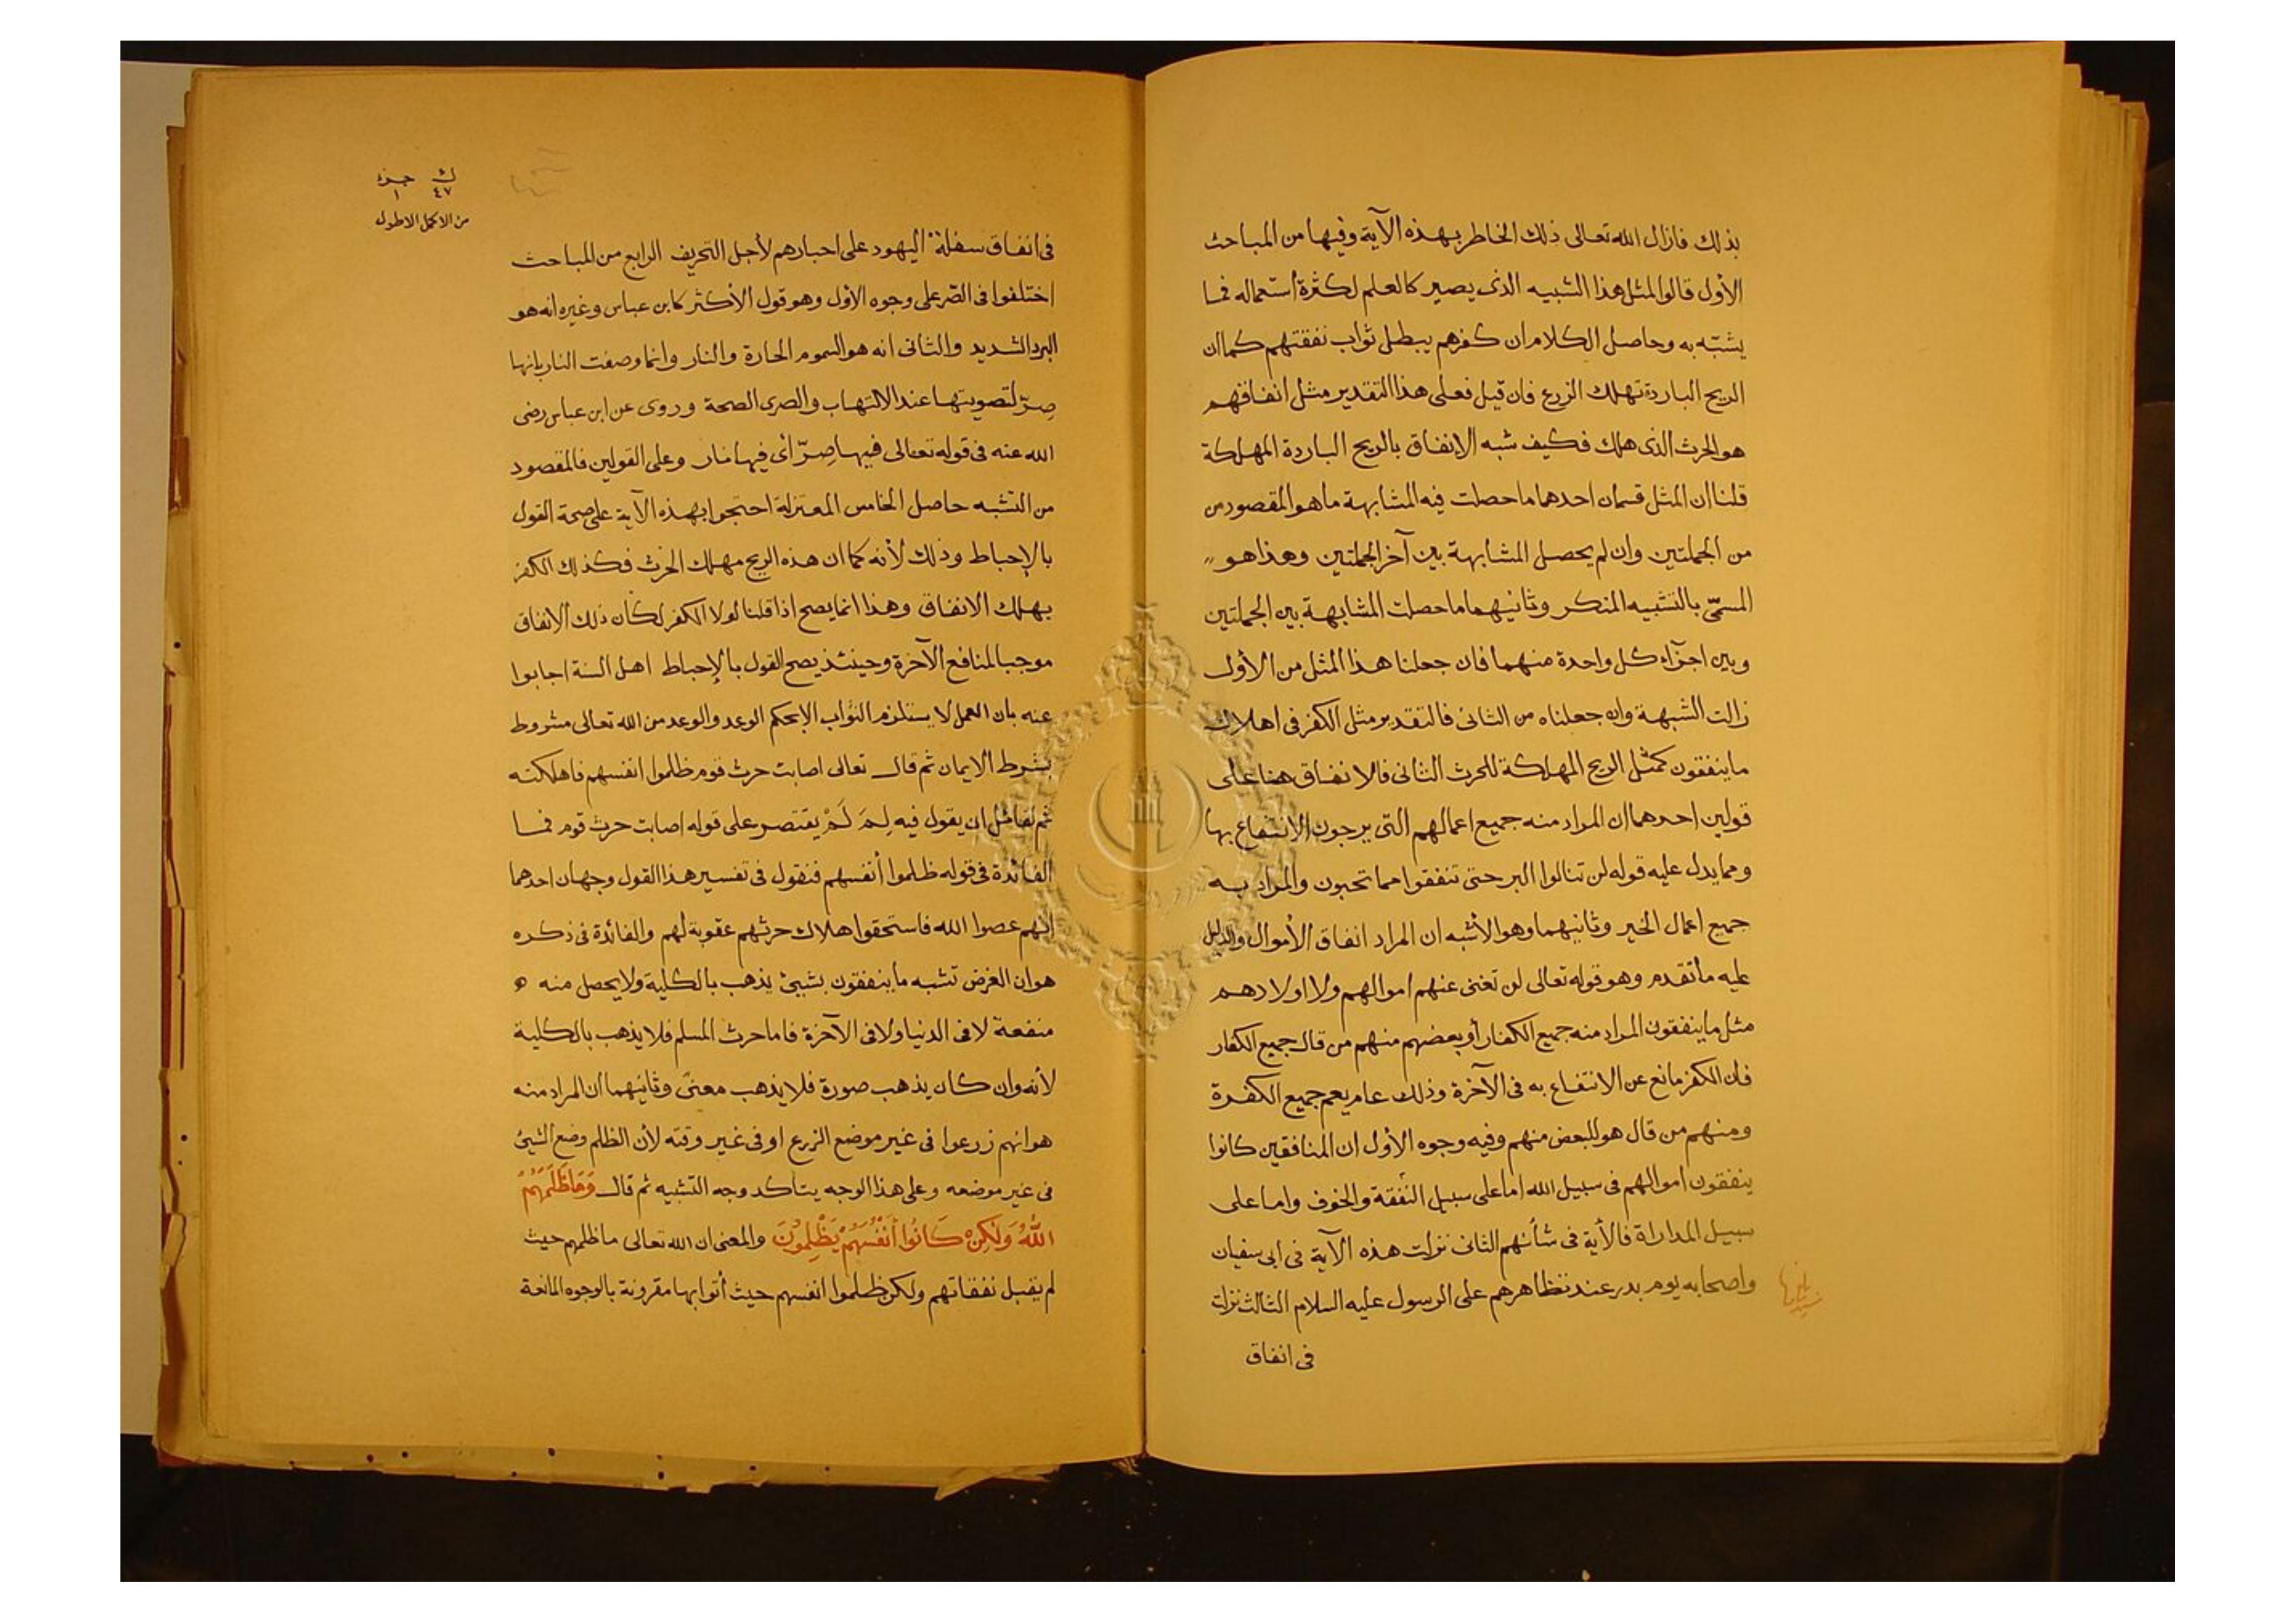 بذلك فازال الله تعالى ذلك الخاطر بهذه الآية وفيها من المباحث
الأول قالوا المثل هذا الشبيه الذى يصير كالعلم لكثرة أستعماله فما
يشبّه به وحاصل الكلام ان كفرهم يبطل ثواب نفقتهم كما ان
الريح الباردة تهلك الزرع فان قيل فعلى هذا التقدير مثل انفاقهم
هو الحرث الذى هلك فكيف شبه الإنفاق بالريح الباردة المهلكة
قلنا ان المثل قسمان احدهما ما حصلت فيه المشابهة ما هو المقصود من
من الجملتين وان لم يحصل المشابهة بين آخر الجملتين وهذا هو
المسمّى بالتشبيه المنكر وثانيهما ما حصلت المشابهة بين الجملتين
وبين اجزآء كل واحدة منهما فان جعلنا هذا المثل من الأول
زالت الشبهة وان جعلناه من الثانى فالتقدير مثل الكفر فى اهلاك
ما ينفقون كمثل الريح المهلكة للحرث الثانى فالانفاق هنا على
قولين احدهما ان المراد منه جميع اعمالهم التى يرجون الانتفاع بها
ومما يدل عليه قوله لن تنالوا البر حتى تنفقوا مما تحبون والمراد به
جميع اعمال الخير وثانيهما وهو الأشبه ان المراد انفاق الأموال والدليل
عليه ما تقدم وهو قوله تعالى لن تغنى عنهم اموالهم ولا اولادهم
مثل ما ينفقون المراد منه جميع الكفار أو بعضهم منهم من قال جميع الكفار
فان الكفر مانع عن الانتفاع به فى الآخرة وذلك عام يعم جميع الكفرة
ومنهم من قال هو للبعض منهم وفيه وجوه الأول ان المنافقين كانوا
ينفقون اموالهم فى سبيل الله اما على سبيل النفقة والخوف واما على
سبيل المداراة فالأية فى شأنهم الثانى نزلت هذه الآية فى ابى سفيان
واصحابه يوم بدر عند تظاهرهم على الرسول عليه السلام الثالث نزلت
فى انفاق
ك جزء
٤٧ ١
من الاكمل الاطول
فى انفاق سفلة اليهود على احبارهم لأجل التحريف الرابع من المباحث
اختلفوا فى الصّر على وجوه الأول وهو قول الأكثر كابن عباس وغيره انه هو
البرد الشديد والثانى انه هو السموم الحارة والنار وانما وصفت النار بانها
صِرّ لتصويتها عند الالتهاب والصرى الصحة وروى عن ابن عباس رضى
الله عنه فى قوله تعالى فيها صِرّ أى فيها نار وعلى القولين فالمقصود
من التشبه حاصل الخامس المعتزلة احتجوا بهذه الآية على صحة القول
بالإحباط وذلك لأنه كما ان هذه الريح مهلك الحرث فكذلك الكفر
يهلك الانفاق وهذا انما يصح اذا قلنا لولا الكفر لكان ذلك الانفاق
موجبا لمنافع الآخرة وحينئذ يصح القول بالإحباط اهل السنة اجابوا
عنه بان العمل لا يستلزم الثواب الا بحكم الوعد والوعد من الله تعالى مشروط
بشرط الايمان ثم قال تعالى اصابت حرث قوم ظلموا انفسهم فاهلكته
ثم لقائل ان يقول فيه لِمَ لَمْ يقتصر على قوله اصابت حرث قوم فما
الفائدة فى قوله ظلموا أنفسهم فنقول فى تفسير هذا القول وجهان احدهما
انهم عصوا الله فاستحقوا هلاك حرثهم عقوبة لهم والفائدة فى ذكره
هو ان الغرض تشبه ما ينفقون بشيئ يذهب بالكلية ولا يحصل منه
منفعة لا فى الدنيا ولا فى الآخرة فاما حرث المسلم فلا يذهب بالكلية
لأنه وان كان يذهب صورة فلا يذهب معنىً وثانيهما ان المراد منه
هو انهم زرعوا فى غير موضع الزرع او فى غير وقته لأن الظلم وضع الشيئ
فى غير موضعه وعلى هذا الوجه يتأكد وجه التشبيه ثم قال وَمَا ظَلَمَهُمُ
اللّٰهُ وَلٰكِنْ كَانُوا أَنْفُسَهُمْ يَظْلِمُونَ والمعنى ان الله تعالى ما ظلمهم حيث
لم يقبل نفقاتهم ولكن ظلموا انفسهم حيث أتوا بها مقرونة بالوجوه المانعة